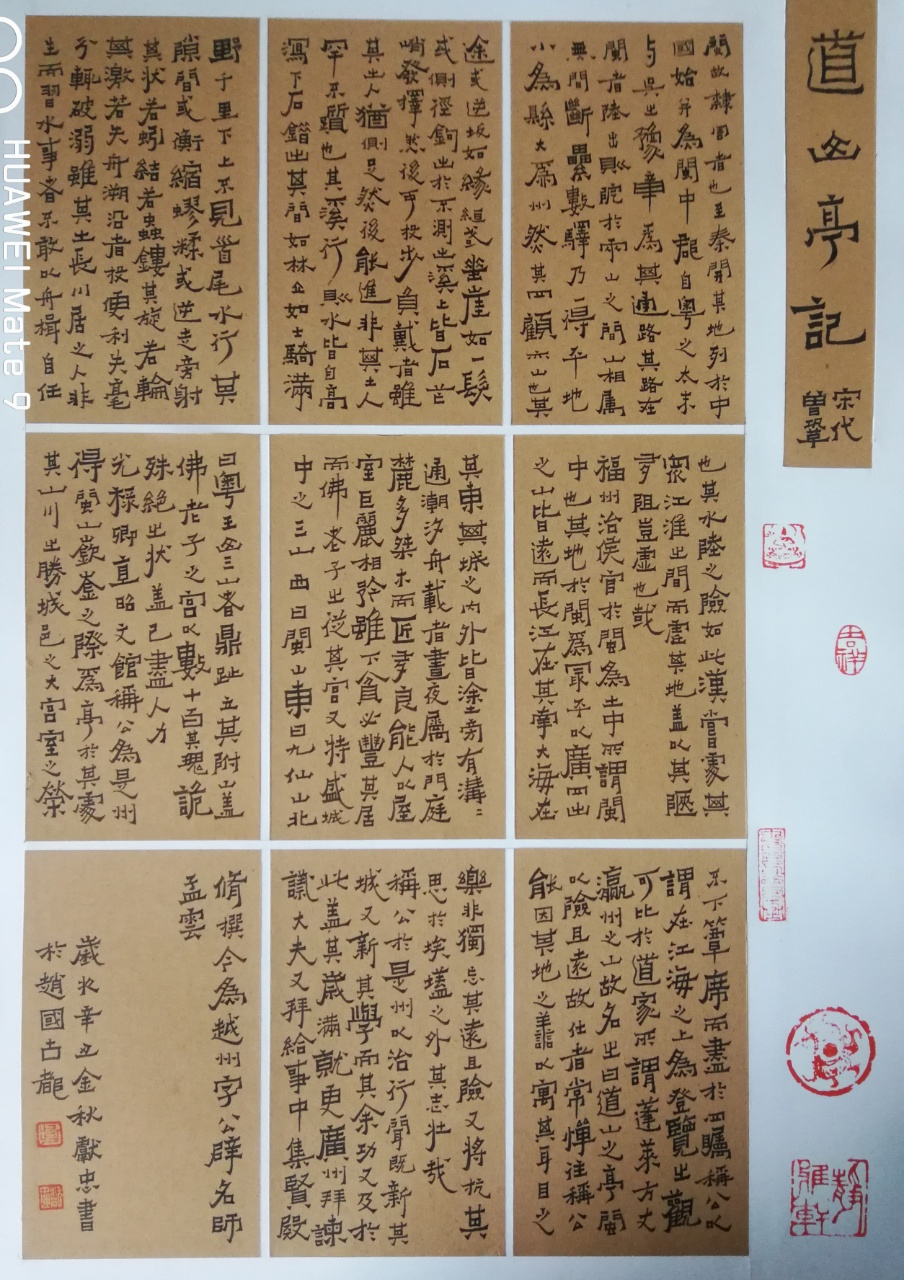 道山亭記
宋代
曾鞏
閩故隸周者也至秦開其地列於中
國始并為閩中郡自粵之太末
與吳之豫章為其通路其路在
閩者陸出則阸於兩山之間山相屬
無間斷纍數驛乃一得平地
小為縣大為州然其四顧亦山也其
途或逆坂如緣絙或垂崖如一髮
或側徑鉤出於不測之溪上皆石芒
峭發擇然後可投步負戴者雖
其土人猶側足然後能進非其土人
罕不質也其溪行則水皆自高
瀉下石錯出其間如林立如士騎滿
野千里下上不見首尾水行其
隙間或衡縮蟉糅或逆走旁射
其狀若蚓結若蟲鏤其旋若輪
其激若矢舟溯沿者投便利失毫
分輒破溺雖其土長川居之人非
生而習水事者不敢以舟楫自任
也其水陸之險如此漢嘗處其
眾江淮之間而虛其地蓋以其陿
多阻豈虛也哉
福州治侯官於閩為土中所謂閩
中也其地於閩為最平以廣四出
之山皆遠而長江在其南大海在
其東其城之內外皆塗旁有溝〻
通潮汐舟載者晝夜屬於門庭
麓多桀木而匠多良能人以屋
室巨麗相矜雖下貧必豐其居
而佛老子之徒其宮又特盛城
中之三山西曰閩山東曰九仙山北
曰粵王山三山者鼎趾立其附山蓋
佛老子之宮以數十百其瑰詭
殊絕之狀蓋已盡人力
光祿卿直昭文館稱公為是州
得閩山嶔崟之際為亭於其處
其山川之勝城邑之大宮室之榮
不下簟席而盡於四矚稱公以
謂在江海之上為登覽之觀
可比於道家所謂蓬萊方丈
瀛州之山故名之曰道山之亭閩
以險且遠故仕者常憚往稱公
能因其地之善以寓其耳目之
樂非獨忘其遠且險又將抗其
思於埃壒之外其志壯哉
稱公於是州以治行聞既新其
城又新其學而其余功又及於
此蓋其歲滿就更廣州拜諫
議大夫又拜給事中集賢殿
脩撰今為越州字公辟名師
孟雲
歲次辛丑金秋獻忠書
於趙國古都
吉祥
靜雅軒
HUAWEI Mate 9